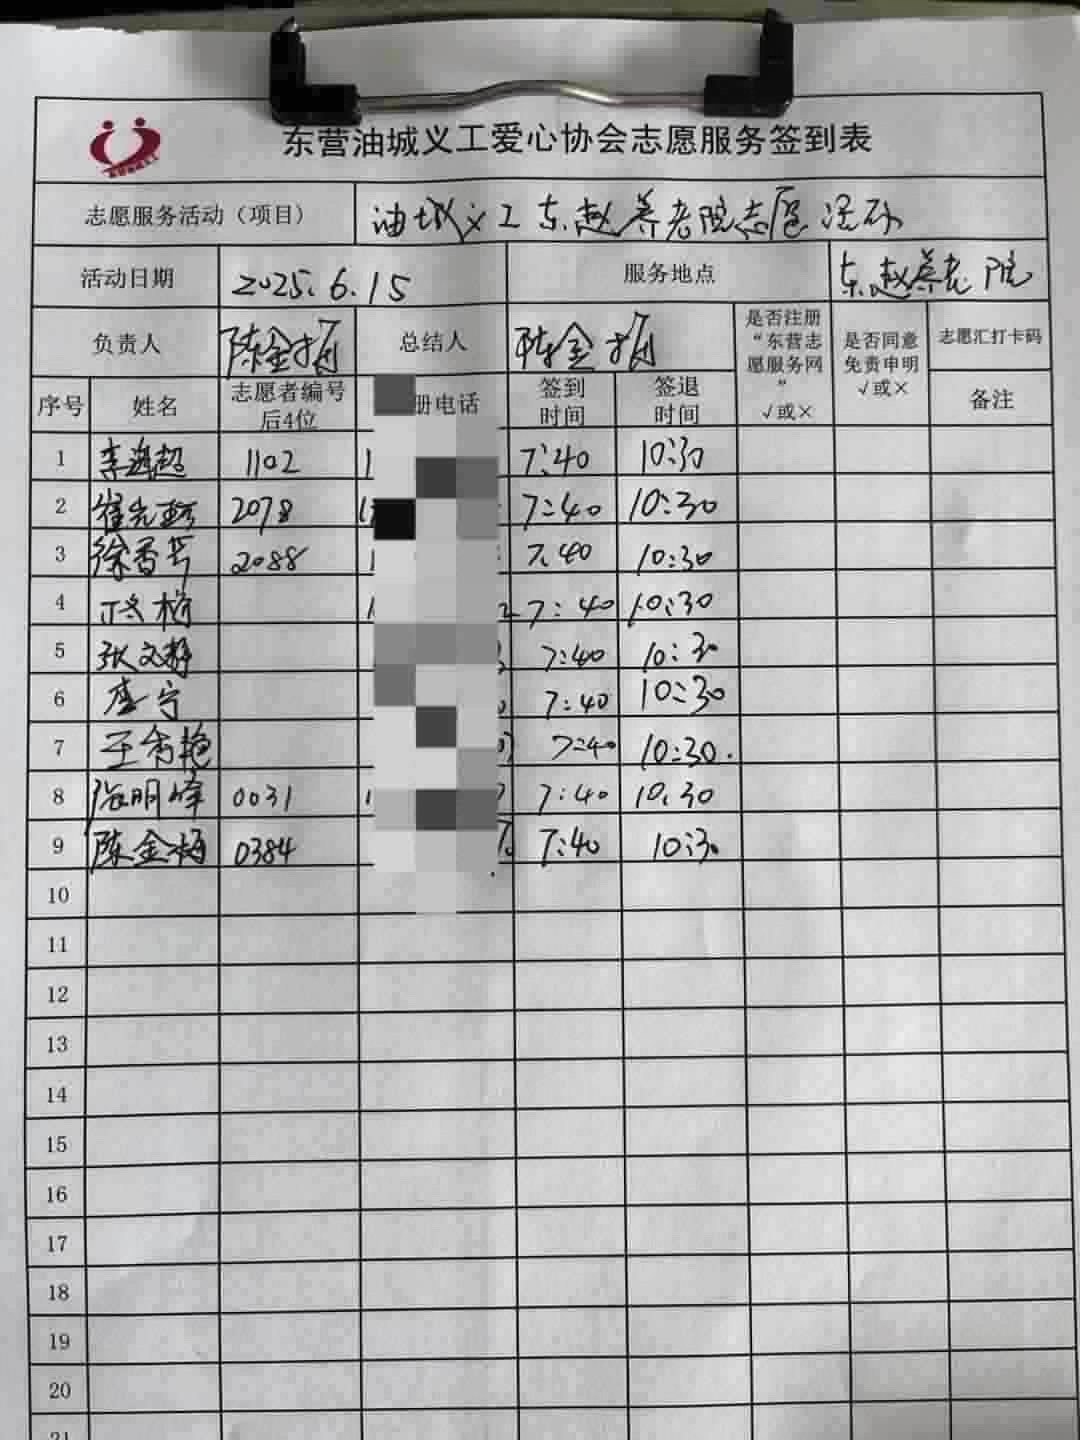 东营油城义工爱心协会志愿服务签到表
志愿服务活动（项目） 油城义工东赵养老院志愿活动
活动日期 2025.6.15 服务地点 东赵养老院
负责人 陈金梅 总结人 陈金梅 是否注册“东营志愿服务网” √或× 是否同意免责申明 √或× 志愿汇打卡码
序号 姓名 志愿者编号后4位 册电话 签到时间 签退时间 备注
1 李海超 1102 1 7:40 10:30
2 崔 2078 7:40 10:30
3 徐香芳 2088 1 7:40 10:30
4 梅 1 2 7:40 10:30
5 张文静 7:40 10:30
6 李宁 7:40 10:30
7 王秀艳 7:40 10:30.
8 张明峰 0031 7:40 10:30
9 陈金梅 0384 7:40 10:30
10
11
12
13
14
15
16
17
18
19
20
21